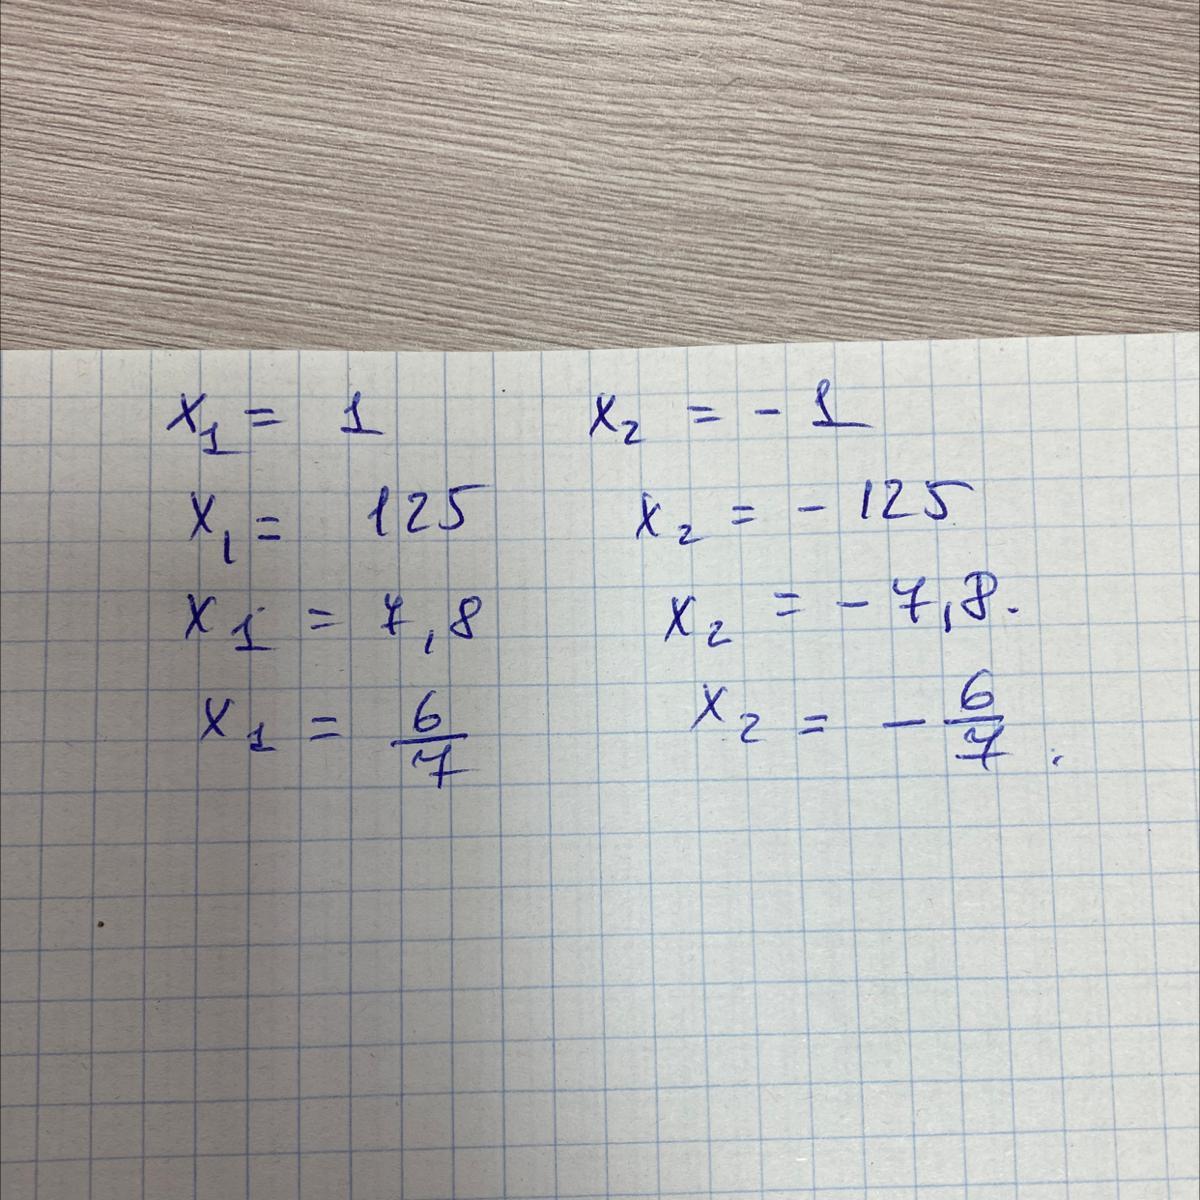 x₁ = 1 x₂ = - 1
x₁ = 125 x₂ = - 125
x₁ = 7,8 x₂ = - 7,8.
x₁ = 6/7 x₂ = - 6/7.